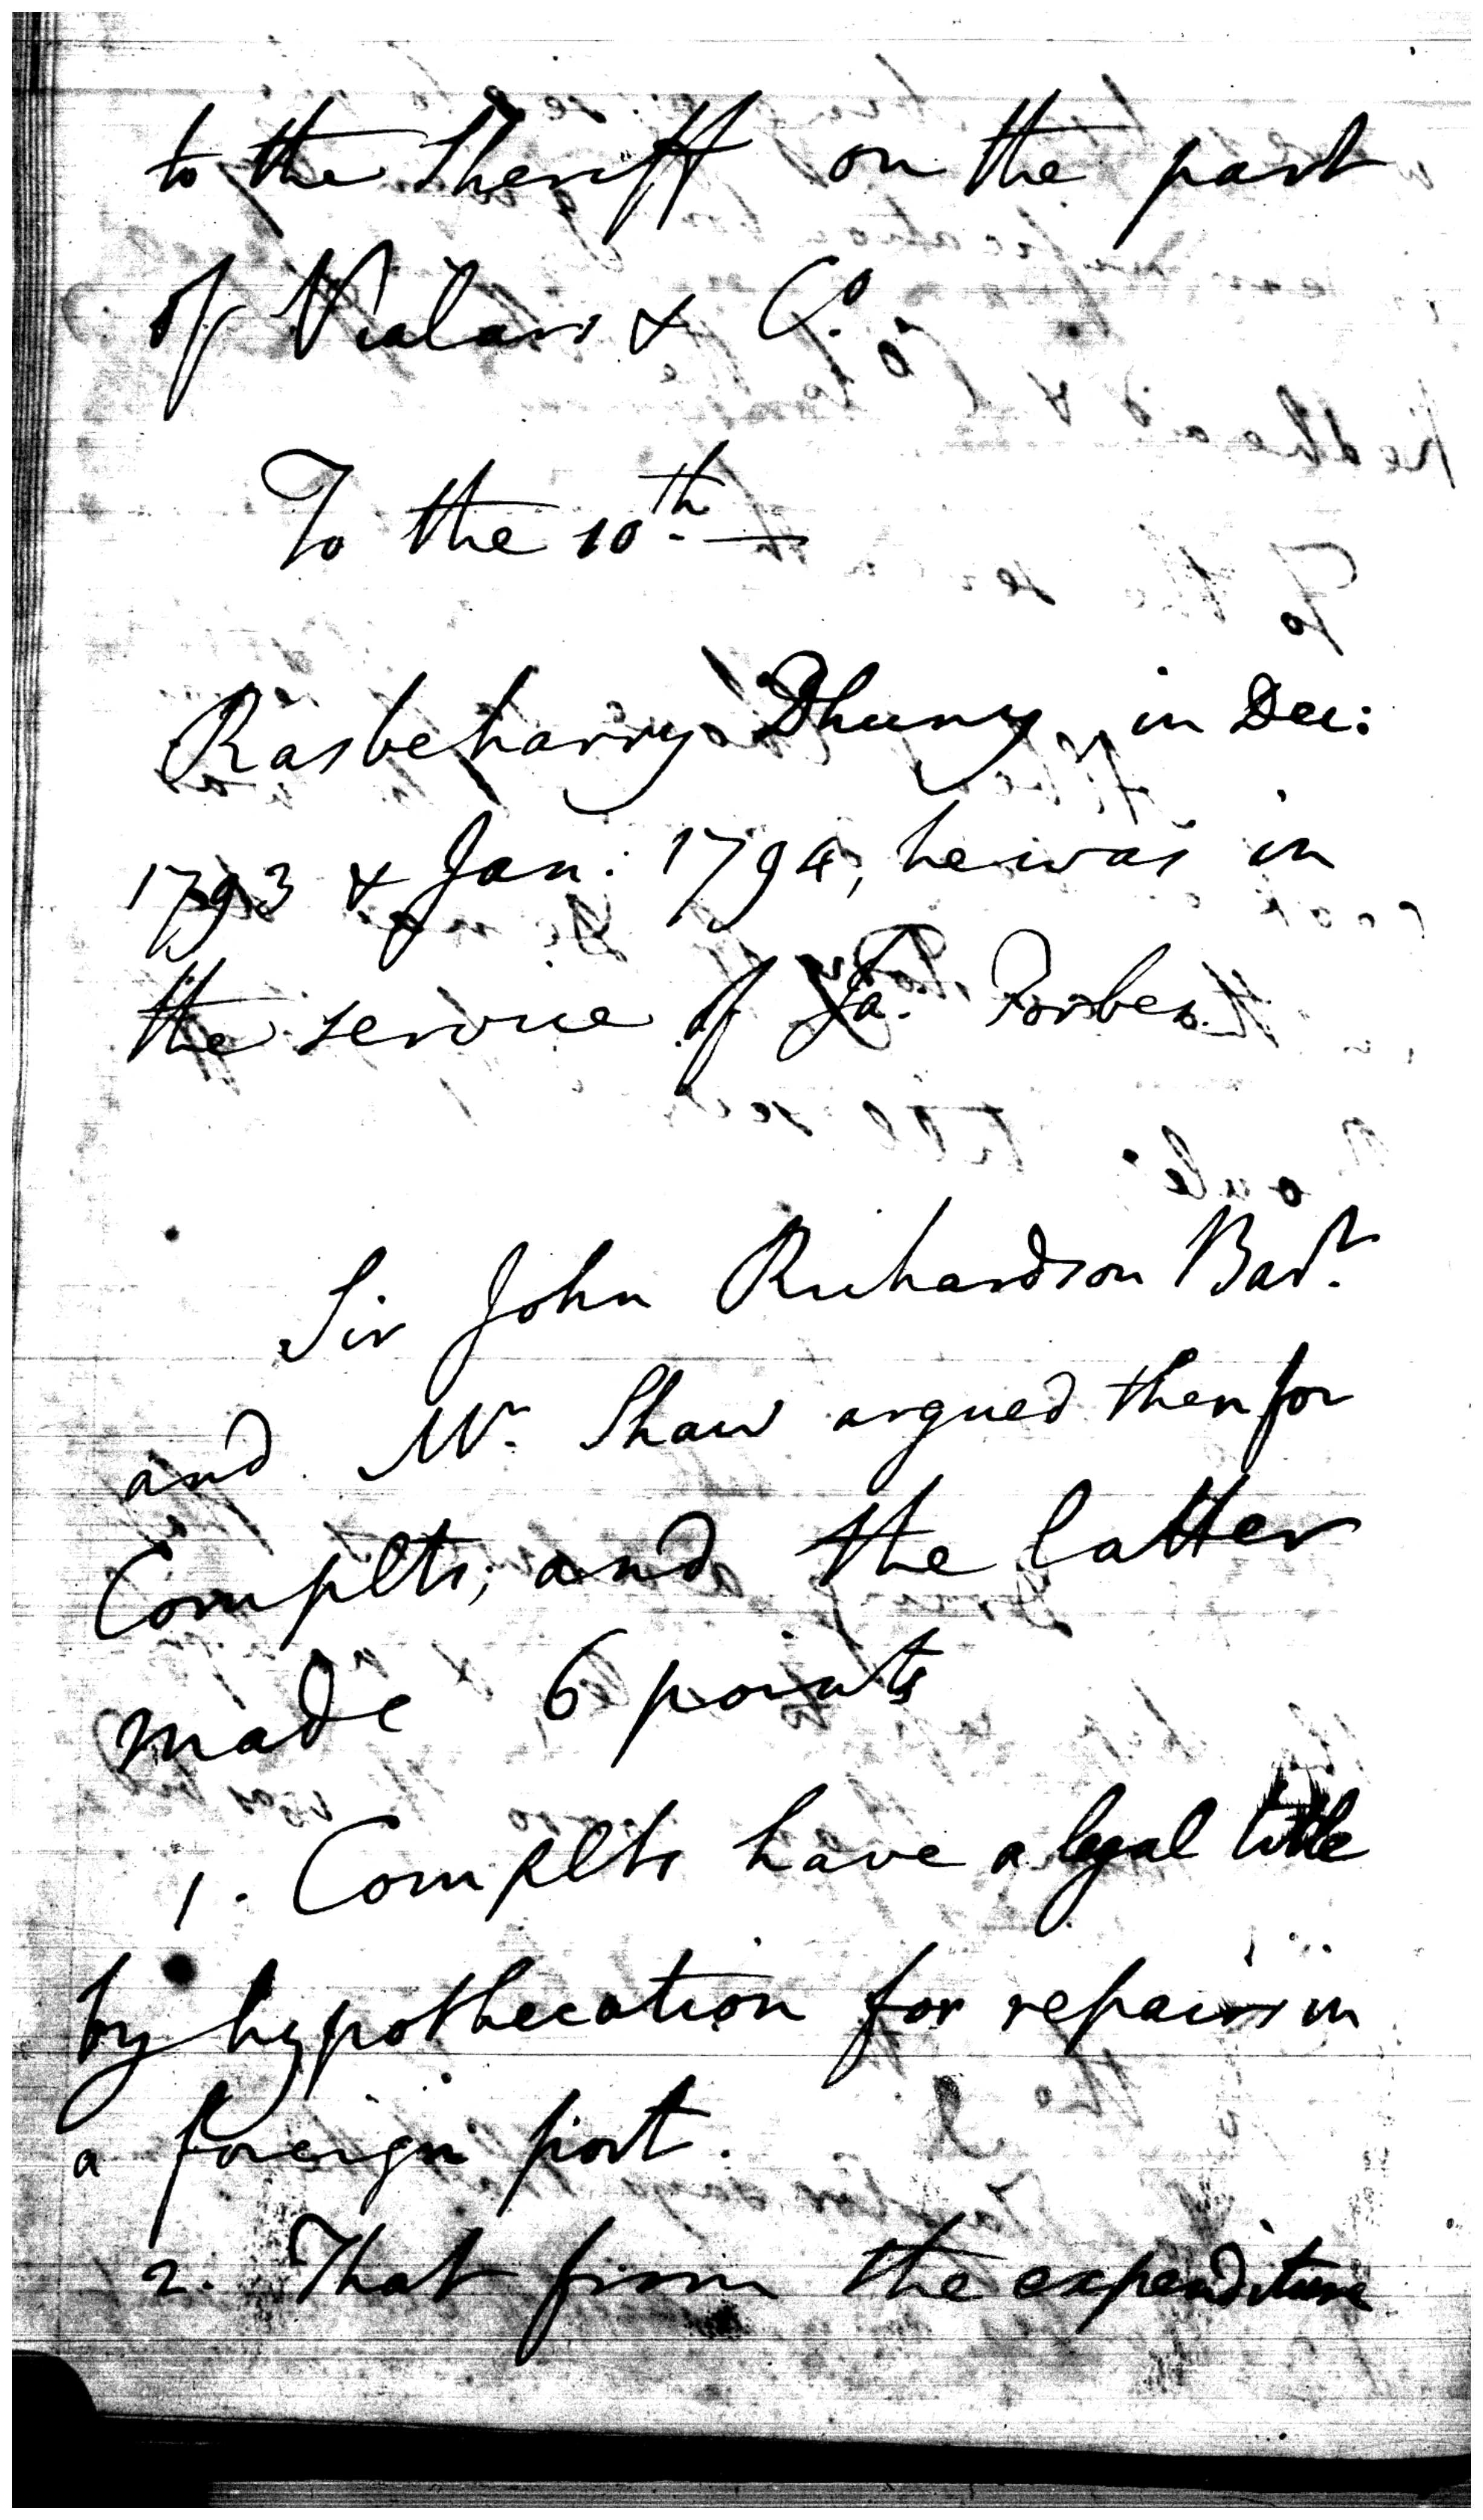 to the Sheriff on the part
of Vialars & Co.
To the 10th. —
Rasbeharry Dhuny in Dec:
1793 & Jan: 1794, he was in
the service of Ja. Forbes.
Sir John Richardson Bart.
and Mr. Shaw argued then for
Complts, and the latter
made 6 points
1. Complts have a legal title
by hypothecation for repairs in
a foreign port.
2. That from the expenditure